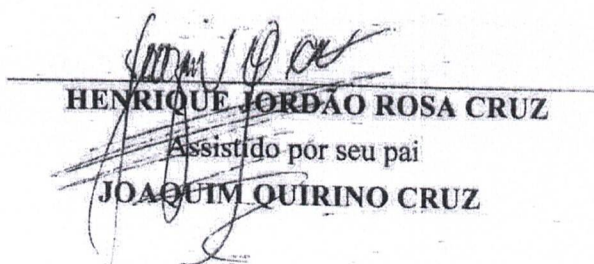 HENRIQUE JORDÃO ROSA CRUZ
Assistido por seu pai
JOAQUIM QUIRINO CRUZ